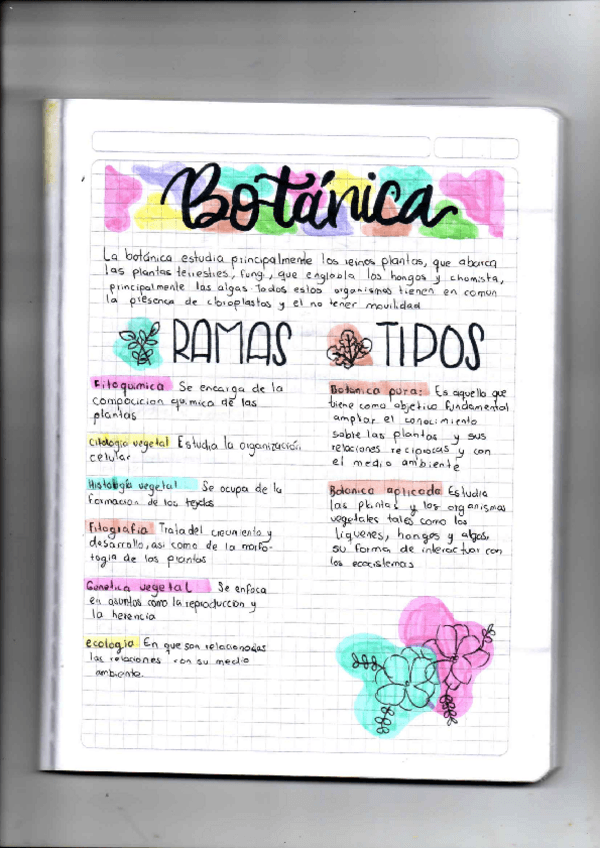 Botánica
La botánica estudia principalmente los reinos plantas, que abarca
las plantas terrestres, fungi, que englobla los hongos y chomista,
principalmente las algas. Todos estos organismos tienen en comun
la presencia de cloroplastos y el no tener movilidad
RAMAS
Fitoquimica Se encarga de la
compocicion quimica de las
plantas
Citologia vegetal Estudia la organización
celular
Histología vegetal Se ocupa de la
formacion de los tejidos
Fitografia Trata del crecimiento y
desarrollo, asi como de la morfo-
logia de las plantas
Genetica vegetal Se enfoca
en asuntos como la reproduccion y
la herencia
ecologia En que son relacionadas
las relaciones con su medio
ambiente.
TIPOS
Botanica pura: Es aquello que
tiene como objetivo fundamental
ampliar el conocimiento
sobre las plantas y sus
relaciones reciprocas y con
el medio ambiente
Botanica aplicada Estudia
las plantas y los organismos
vegetales tales como los
liquenes, hongos y algas,
su forma de interactuar con
los ecocistemas